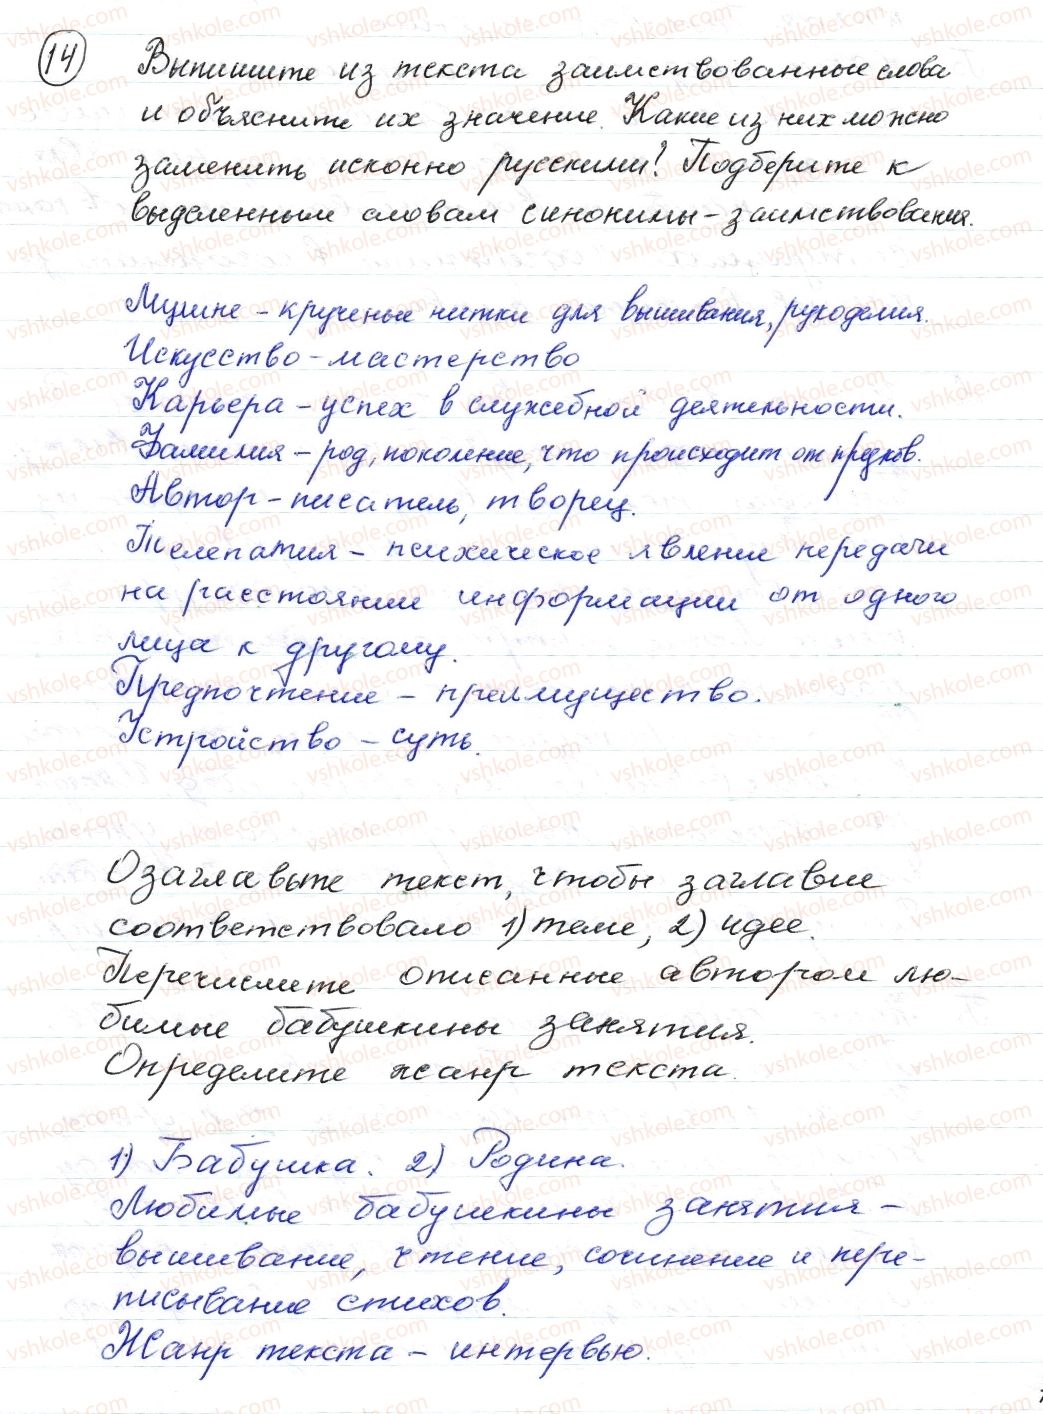 14 Выпишите из текста заимствованные слова
и объясните их значение. Какие из них можно
заменить исконно русскими? Подберите к
выделенным словам синонимы-заимствования.
Мулине - крученые нитки для вышивания, рукоделия.
Искусство - мастерство
Карьера - успех в служебной деятельности.
Фамилия - род, поколение, что происходит от предков.
Автор - писатель, творец.
Телепатия - психическое явление передачи
на расстоянии информации от одного
лица к другому.
Предпочтение - преимущество.
Устройство - суть.
Озаглавьте текст, чтобы заглавие
соответствовало 1) теме, 2) идее.
Перечислите описанные автором лю-
бимые бабушкины занятия.
Определите жанр текста.
1) Бабушка. 2) Родина.
Любимые бабушкины занятия -
вышивание, чтение, сочинение и пере-
писывание стихов.
Жанр текста - интервью.